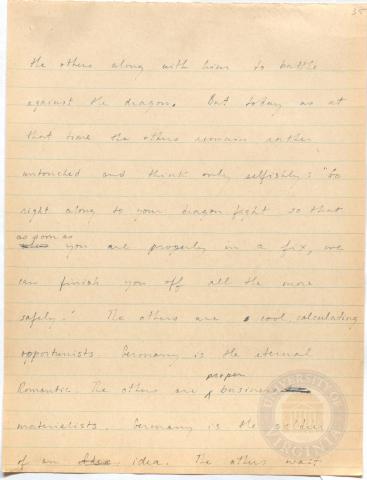 38
the others along with him to battle
against the dragon. But today as at
that time the others remain rather
untouched and think only selfishly: "Go
right along to your dragon fight so that
as soon as
you are properly in a fix, we
can finish you off all the more
safely." The others are cool, calculating
opportunists. Germany is the eternal
Romantic. The others are
proper
business
materialists. Germany is the soldier
of an idea. The others wait
UNIVERSITY OF VIRGINIA